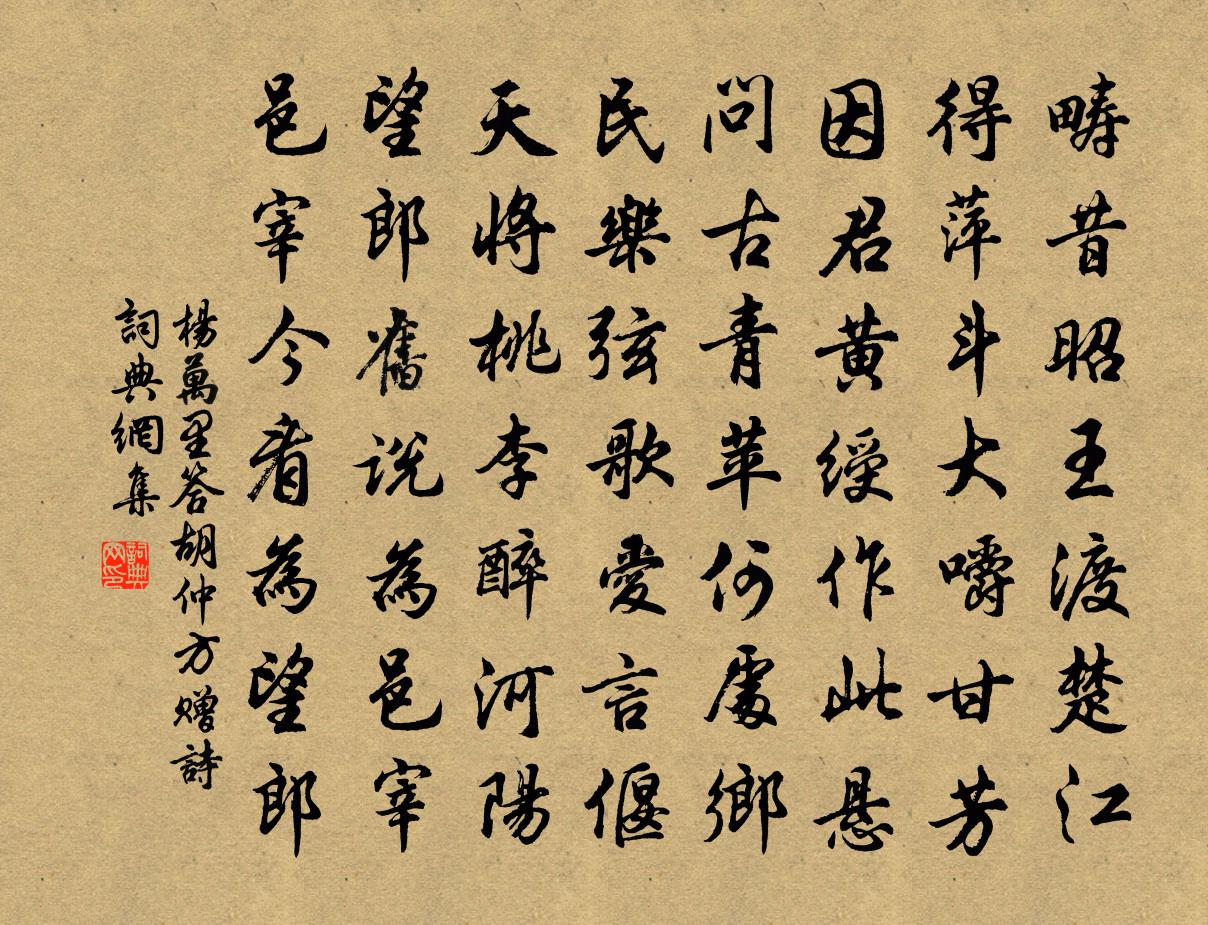 疇昔昭王渡楚江
得萍斗大嚼甘芳
因君黄綬作此悬
問古青苹何處鄉
民樂弦歌愛言偃
天將桃李醉河陽
望郎舊説為邑宰
邑宰今看為望郎
楊萬里答胡仲方贈詩
詞典網集
詞典网印